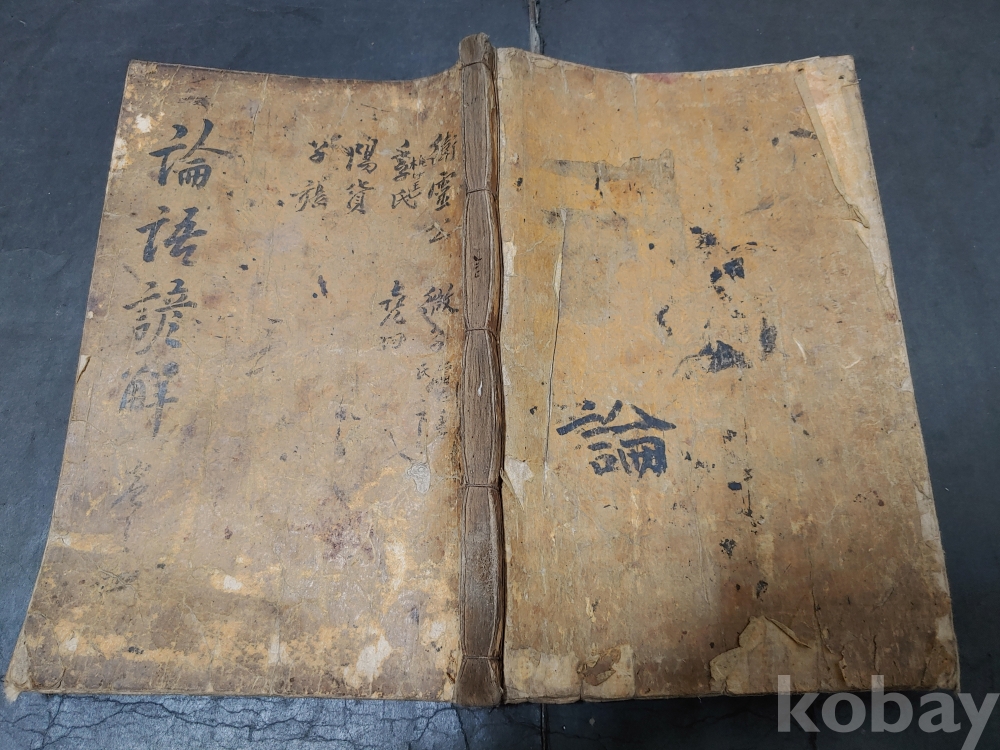 論語諺解
衛靈公
季氏
陽貨
子張
微子
堯曰
論
kobay